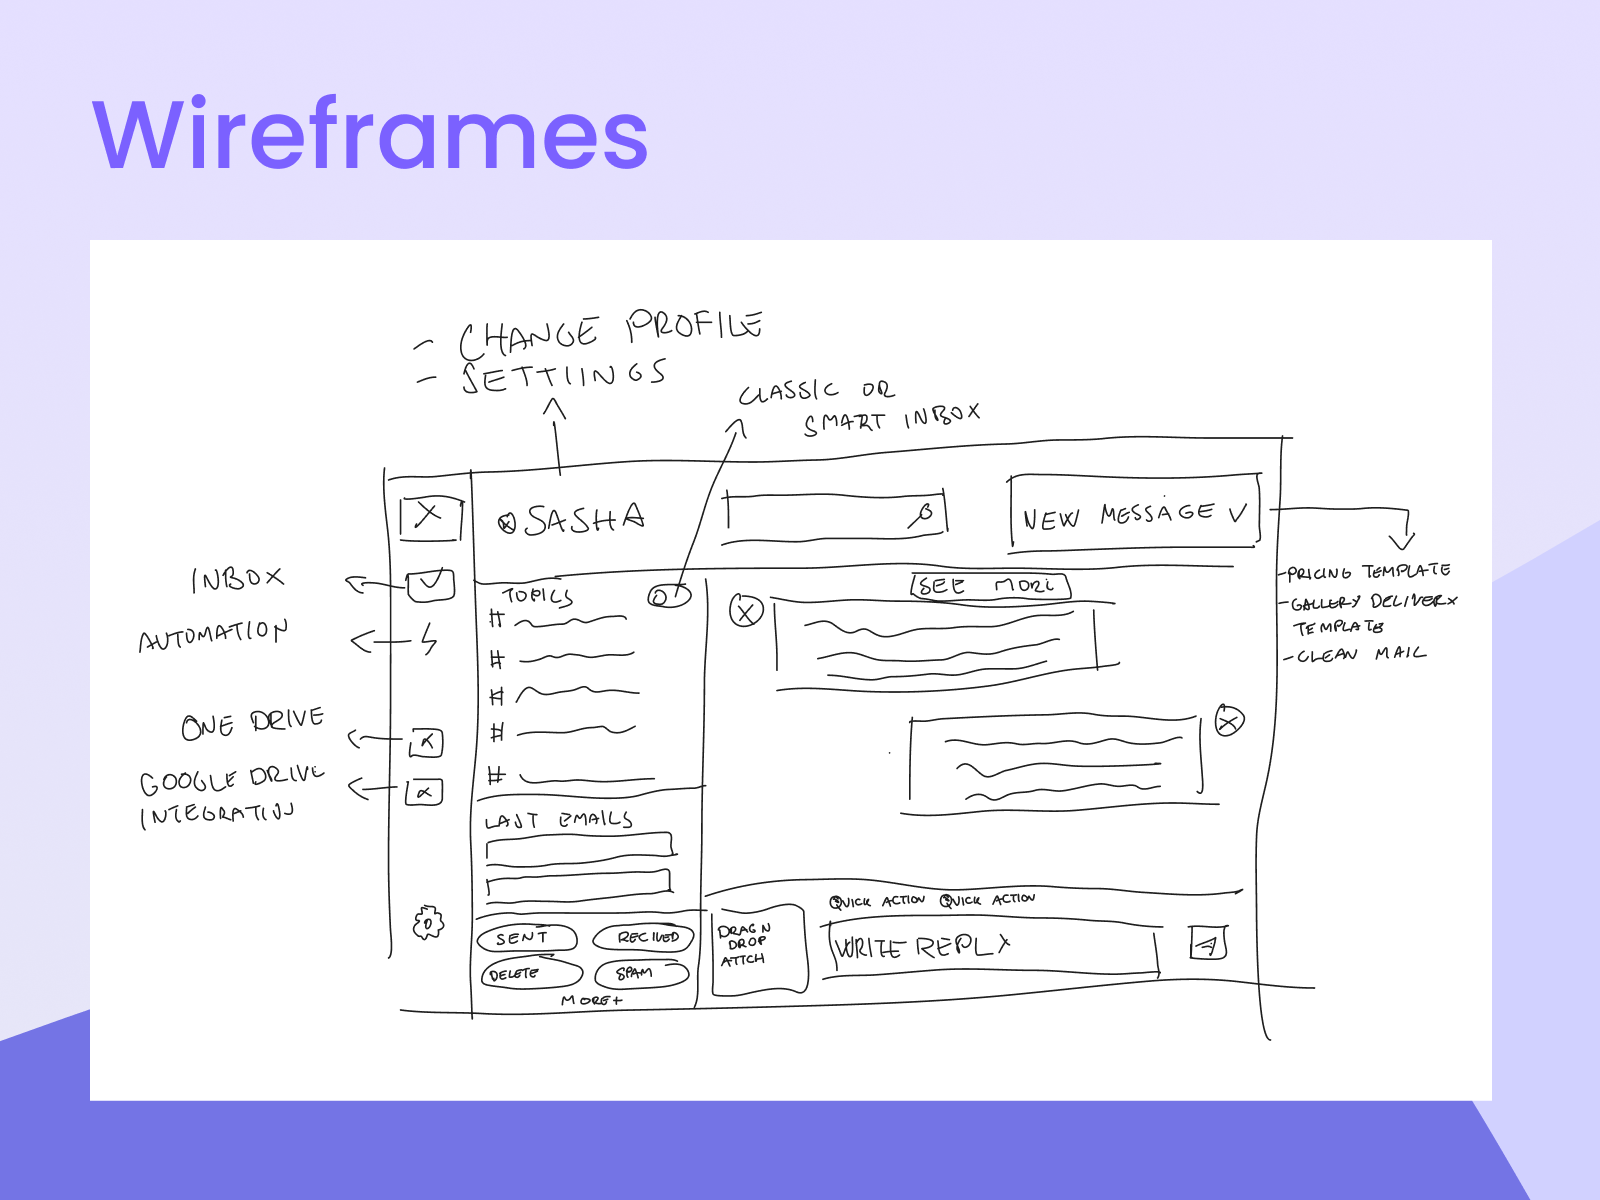 Wireframes
- CHANGE PROFILE
- SETTIINGS
CLASSIC OR
SMART INBOX
SASHA
NEW MESSAGE
- PRICING TEMPLATE
- GALLERY DELIVERY
TEMPLATE
- CLEAN MAIL
INBOX
AUTOMATION
ONE DRIVE
GOOGLE DRIVE
INTEGRATION
TOPICS
#
#
#
#
#
LAST EMAILS
SENT
RECIVED
DELETE
SPAM
MORE+
SEE MORE
QUICK ACTION QUICK ACTION
DRAG N
DROP
ATTCH
WRITE REPLY